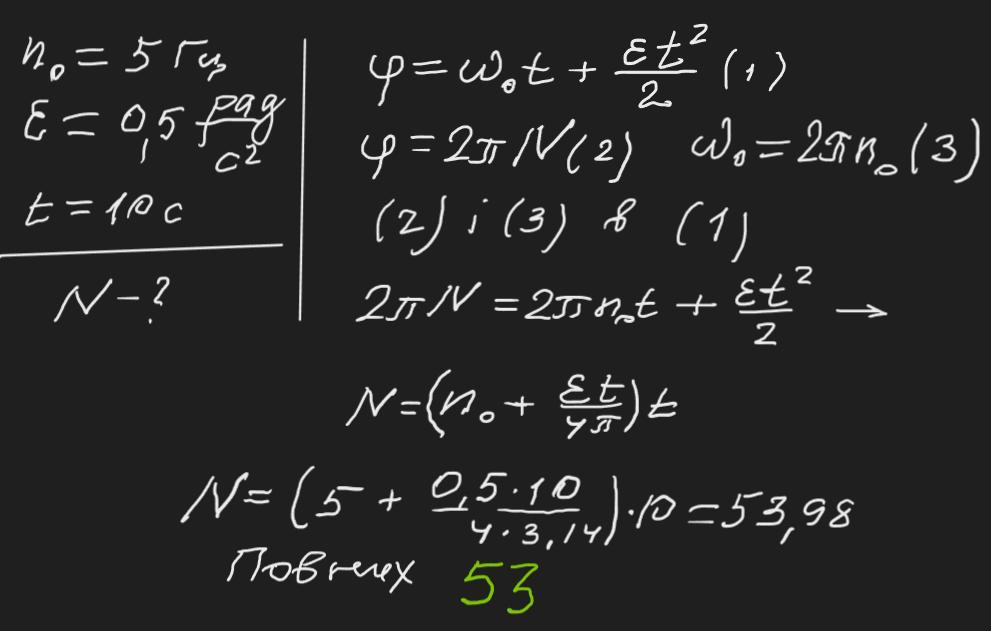 n₀ = 5 Гц
ε = 0,5 рад/с²
t = 10 с
N – ?
φ = ω₀t + εt²/2 (1)
φ = 2πN (2) ω₀ = 2πn₀ (3)
(2) і (3) в (1)
2πN = 2πn₀t + εt²/2 →
N = (n₀ + εt/4π) t
N = (5 + 0,5·10/4·3,14)·10 = 53,98
Повних 53